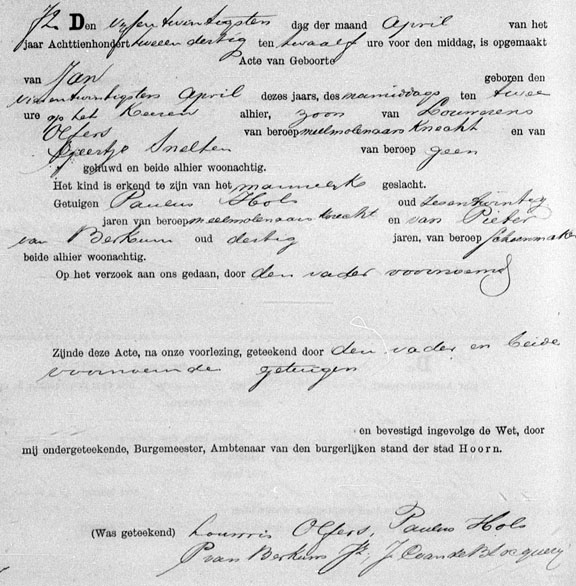 72 Den vijfentwintigsten dag der maand April van het
jaar Achttienhonderd tweeendertig ten twaalf ure voor den middag, is opgemaakt
Acte van Geboorte
van Jan geboren den
vierentwintigsten April dezes jaars, des namiddags ten twee
ure op het Keeren alhier, zoon van Louwrens
Olfers van beroep meelmolenaars knecht en van
Geertje Snelten van beroep geen
gehuwd en beide alhier woonachtig.
Het kind is erkend te zijn van het mannelyk geslacht.
Getuigen Paulus Hols oud zesentwintig
jaren van beroep meelmolenaars knecht en van Pieter
van Berkum oud dertig jaren, van beroep schoenmaker
beide alhier woonachtig.
Op het verzoek aan ons gedaan, door den vader voornoemd
Zijnde deze Acte, na onze voorlezing, geteekend door den vader en beide
voornoemde getuigen
en bevestigd ingevolge de Wet, door
mij ondergeteekende, Burgemeester, Ambtenaar van den burgerlijken stand der stad Hoorn.
(Was geteekend) Louwris Olfers, Paulus Hols
P van Berkum Jz; J. C van de Blocquery